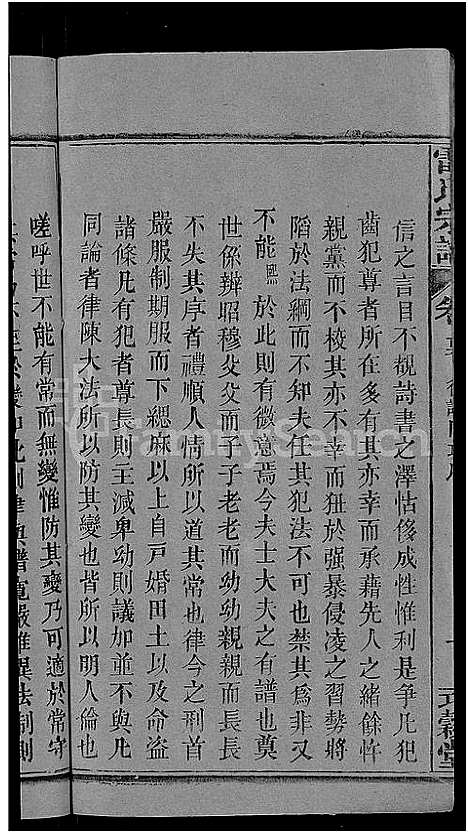 雷氏宗譜
信之言目不覩詩書之澤怙侈成性惟利是爭凡犯
齒犯尊者所在多有其亦幸而承藉先人之緒餘忤
親黨而不校其亦不幸而狃於强暴侵凌之習勢將
陷於法網而不知夫任其犯法不可也禁其爲非又
不能無於此有微意焉今夫士大夫之有譜也奠
世係辨昭穆父父而子子老老而幼幼親親而長長
不失其序者禮順人情所以道其常也律今之刑首
嚴服制期服而下緦麻以上自戸婚田土以及命盜
諸條凡有犯者尊長則主減卑幼則議加並不與凡
同論者律陳大法所以防其變也皆所以明人倫也
嗟呼世不能有常而無變惟防其變乃可適於常守
FamilySearch